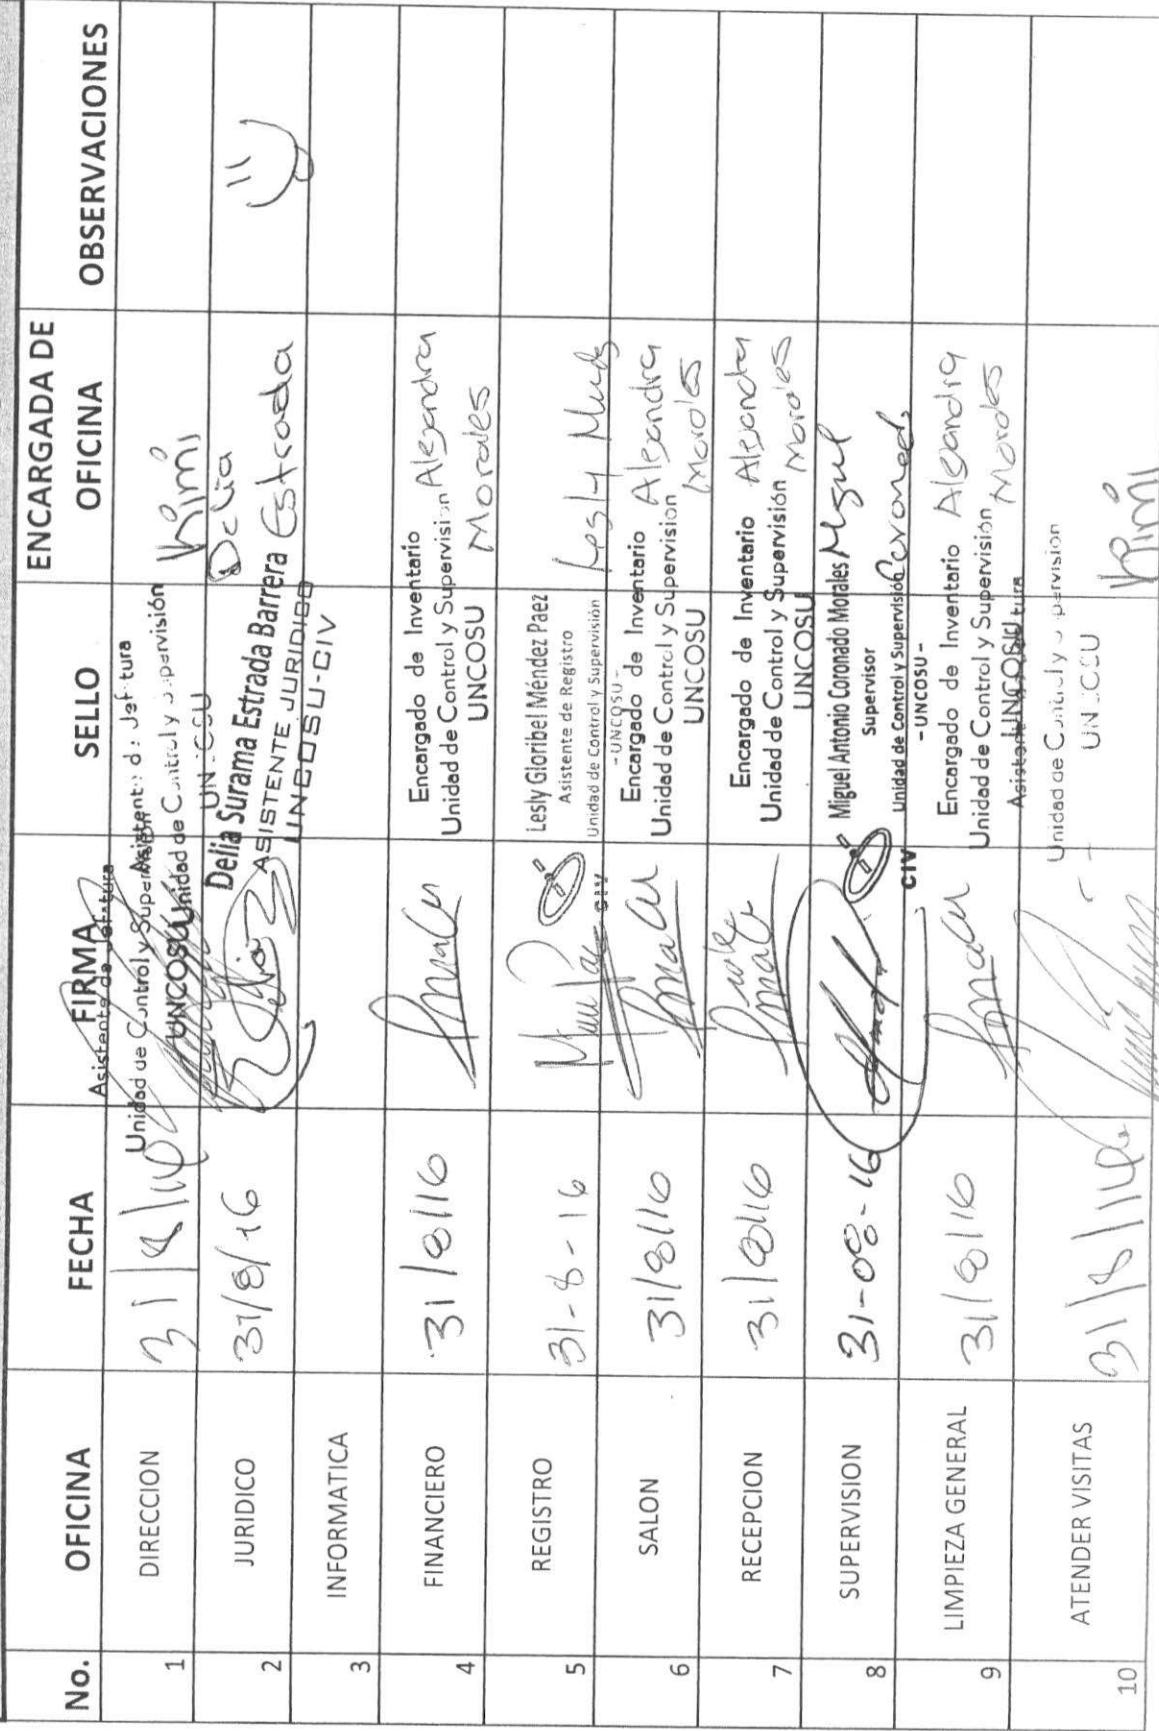 No. OFICINA FECHA FIRMA SELLO ENCARGADA DE OFICINA OBSERVACIONES
Asistente de Jefatura
Unidad de Control y Supervisión
UNCOSU
1 DIRECCION 31/8/16
Asistente de Jefatura
Unidad de Control y Supervisión
UNCOSU
Kimi
2 JURIDICO 31/8/16
Delia Surama Estrada Barrera
ASISTENTE JURIDICO
UNCOSU-CIV
Delia
Estrada
3 INFORMATICA
4 FINANCIERO 31/8/16
Encargado de Inventario
Unidad de Control y Supervisión
UNCOSU
Alejandra
Morales
5 REGISTRO 31-8-16
CIV
Lesly Gloribel Méndez Paez
Asistente de Registro
Unidad de Control y Supervisión
- UNCOSU -
Lesly
6 SALON 31/8/16
Encargado de Inventario
Unidad de Control y Supervisión
UNCOSU
Alejandra
Morales
7 RECEPCION 31/8/16
Encargado de Inventario
Unidad de Control y Supervisión
UNCOSU
Alejandra
Morales
8 SUPERVISION 31-08-16
CIV
Miguel Antonio Coronado Morales
Supervisor
Unidad de Control y Supervisión
- UNCOSU -
Miguel
Coronado
9 LIMPIEZA GENERAL 31/8/16
Encargado de Inventario
Unidad de Control y Supervisión
UNCOSU
Alejandra
Morales
10 ATENDER VISITAS 31/8/16
Asistente de Jefatura
Unidad de Control y Supervisión
UNCOSU
Kimi